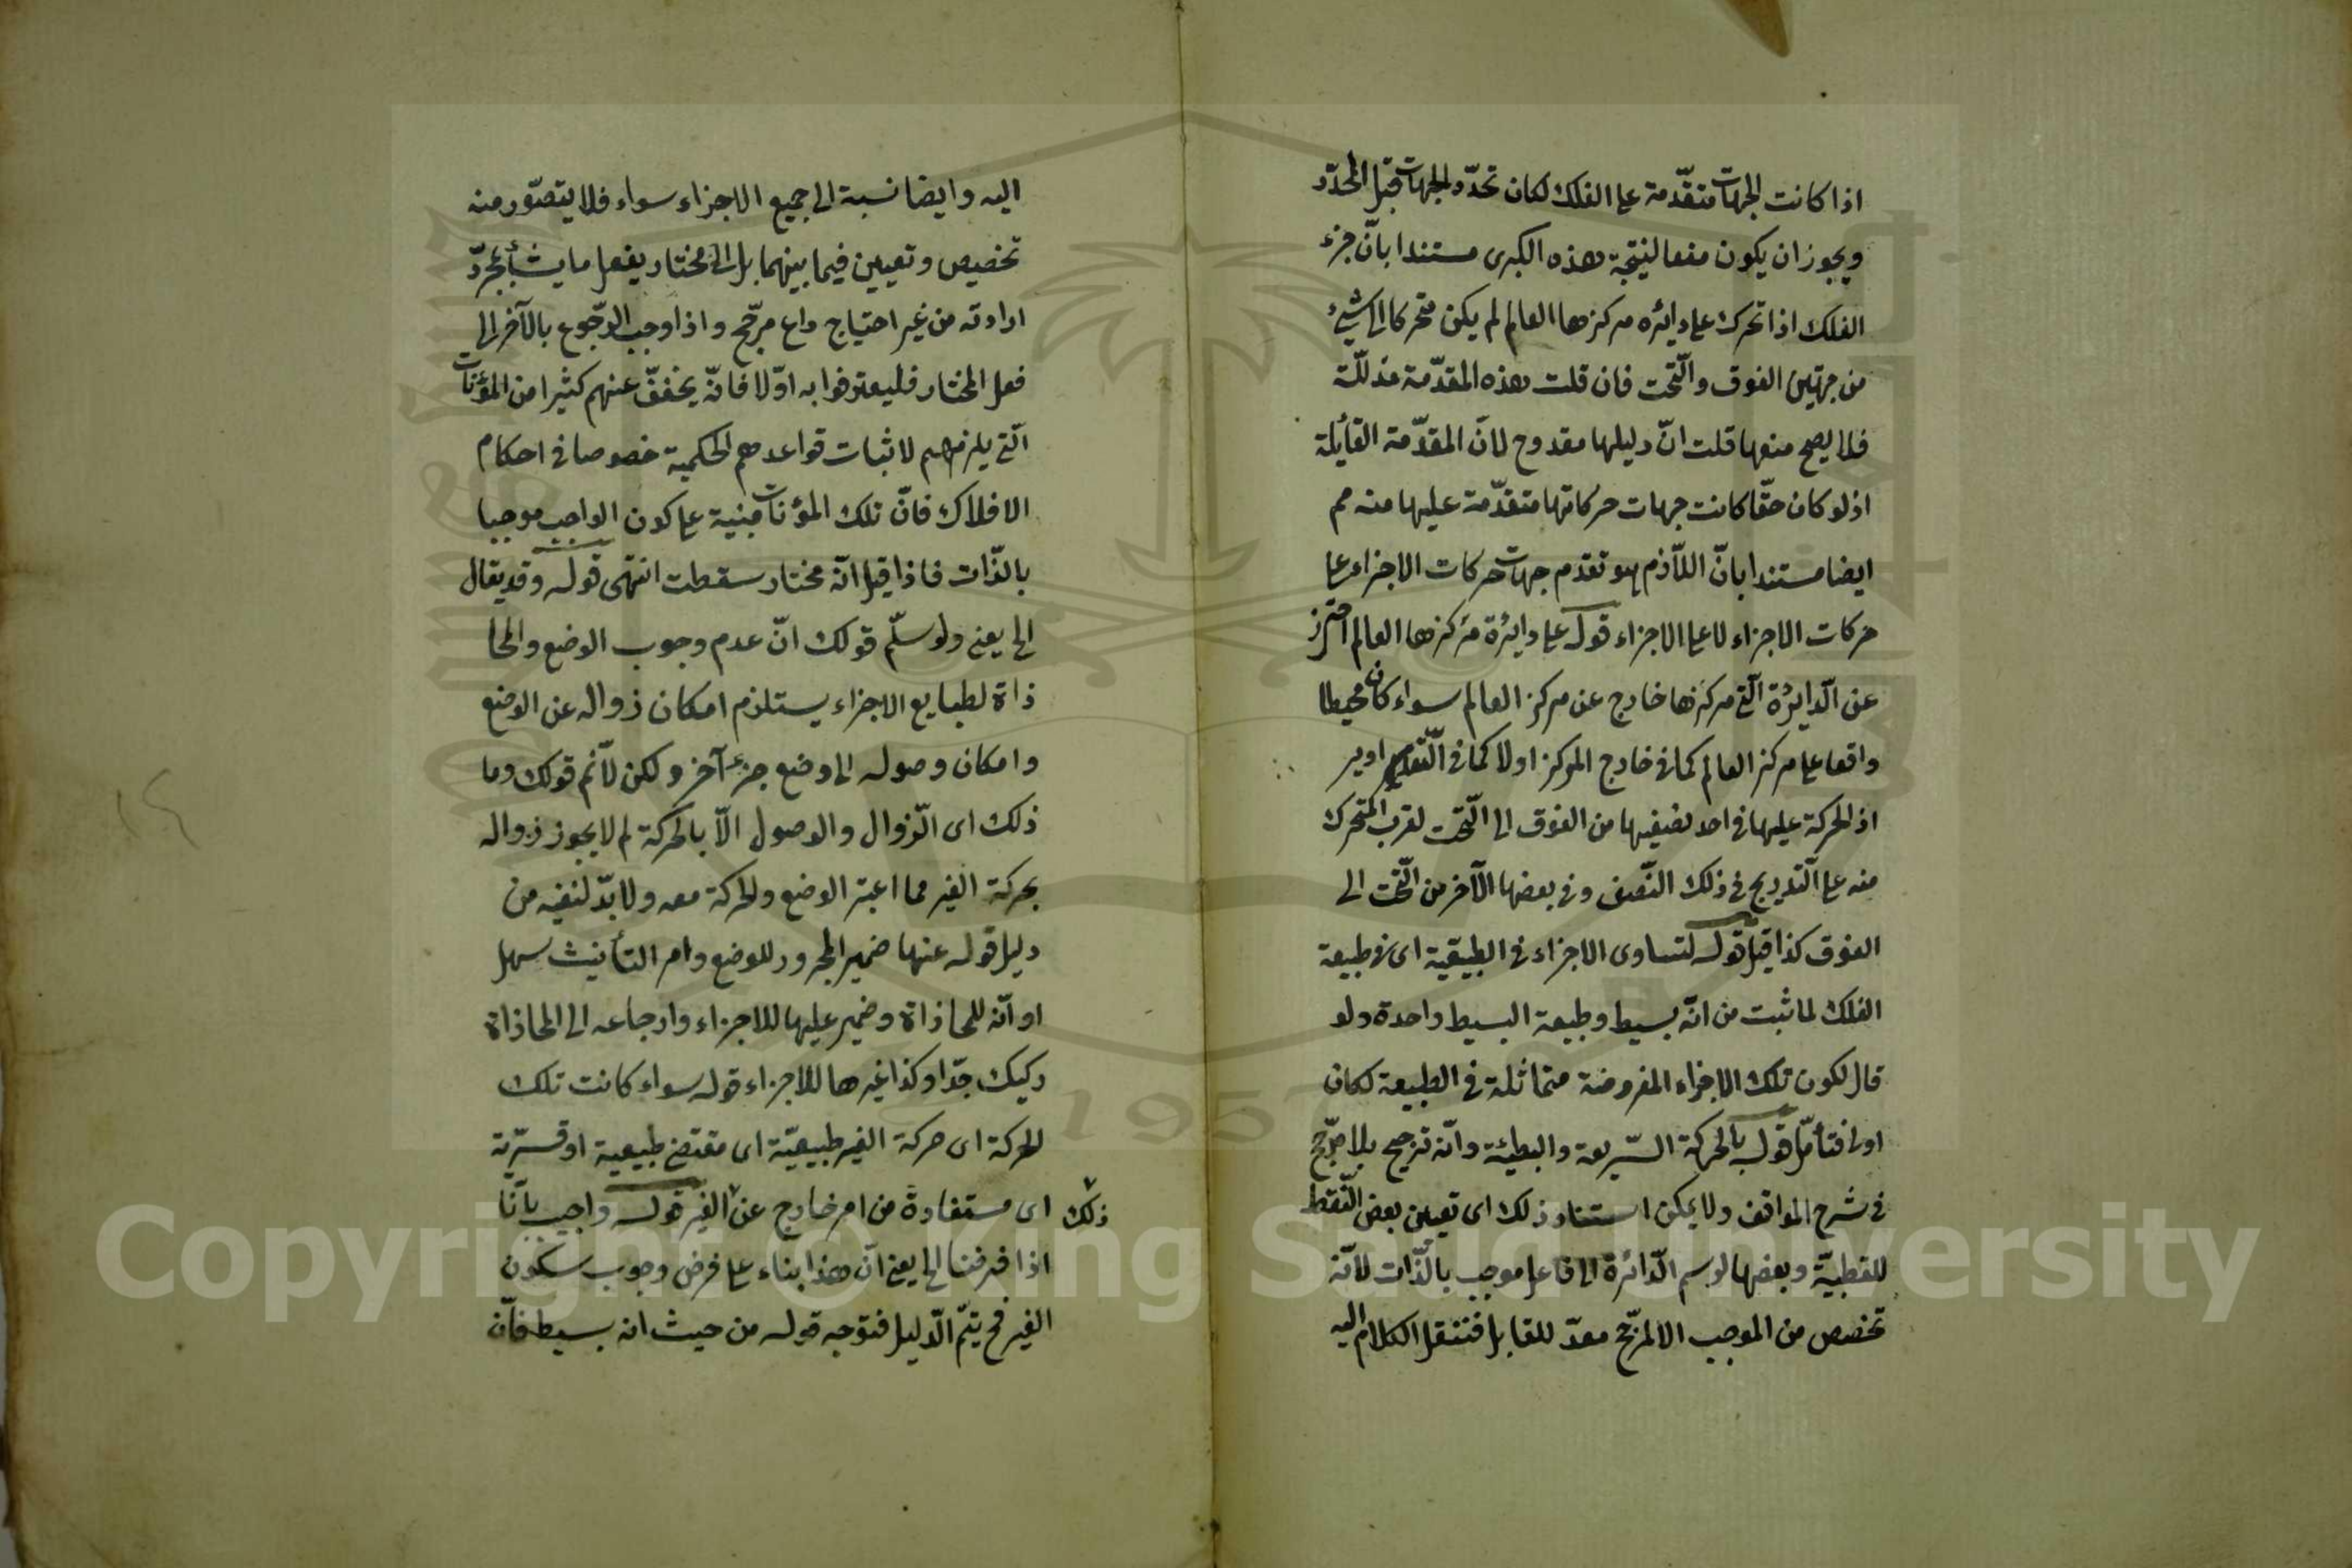 اذا كانت الجهات متقدّمة على الفلك لكان تحدّد الجهات قبل المحدّد
ويجوز ان يكون منعا لنتيجة هذه الكبرى مستندا بانّ جزء
الفلك اذا تحرك على دائره مركزها العالم لم يكن متحركا الى شئ
من جهتين الفوق والتّحت فان قلت هذه المقدّمة مدلّلة
فلا يصح منعها قلت انّ دليلها مقدوح لانّ المقدّمة القائلة
اذ لو كان حقّا كانت جهات حركاتها متقدّمة عليها منه مم
ايضا مستندا بانّ اللاّزم هو تقدم جهات حركات الاجزاء على
حركات الاجزاء لا على الاجزاء قوله على دايرة مركزها العالم احترز
عن الدّايرة الّتى مركزها خارج عن مركز العالم سواء كان محيطا
واقعا على مركز العالم كما فى خارج المركز اولا كما فى التّداوير
اذ الحركة عليها فى احد نصفيها من الفوق الى التّحت لقرب المتحرك
منه على التّدريج فى ذلك النّصف وفى بعضها الآخر من التّحت الى
الفوق كذا قيل قوله لتساوى الاجزاء فى الطبيعيّة اى فى طبيعة
الفلك لما ثبت من انّه بسيط وطبيعة البسيط واحدة ولو
قال لكون تلك الاجزاء المفروضة متماثلة فى الطبيعة لكان
اولى فتأمّل قوله بالحركة السّريعة والبطيئة وانّه ترجيح بلا مرجّح
فى شرح المواقف ولا يمكن استناد ذلك اى تعيين بعض النّقط
للقطبيّة وبعضها لرسم الدّائرة الى فاعل موجب بالذّات لانّه
تخصص من الموجب الا لمرجّح معدّ للقابل فننقل الكلام اليه
اليه وايضا نسبة الى جميع الاجزاء سواء فلا يتصوّر منه
تخصيص وتعيين فيما بينهما بل الى مختار يفعل ما يشأ بمجرّد
ارادته من غير احتياج داع مرجّح واذا وجب الرّجوع بالآخر الى
فعل المختار فليعترفوا به اوّلا فانّه يخفف عنهم كثيرا من المؤنات
الّتى يلزمهم لاثبات قواعدهم الحكمية خصوصا فى احكام
الافلاك فانّ تلك المؤنات مبنية على كون الواجب موجبا
بالذّات فاذا قيل انّه مختار سقطت انتهى قوله وقد يقال
الخ يعنى ولو سلّم قولك انّ عدم وجوب الوضع والمحا
ذاة لطبايع الاجزاء يستلزم امكان زواله عن الوضع
وامكان وصوله الى وضع جزء آخر ولكن لا نّم قولك وما
ذلك اى الزّوال والوصول الّا بالحركة لم لا يجوز زواله
بحركة الغير مما اعتبر الوضع والحركة معه ولا بدّ لنفيه من
دليل قوله عنها ضمير المجرور للوضع وامر التأنيث سهل
او انّه للمحاذاة وضمير عليها للاجزاء وارجاعه الى المحاذاة
ركيك جدّا وكذا غيرها للاجزاء قوله سواء كانت تلك
الحركة اى حركة الغير طبيعيّة اى مقتضى طبيعية او قسريّة
اى مستفادة من امر خارج عن ذلك الغير قوله واجيب بانّا
اذا فرضنا الخ يعنى انّ هذا بناء على فرض وجوب سكون
الغير فح يتمّ الدّليل فتوجه قوله من حيث انه بسيط فانّ
Copyright © King Saud University
1957